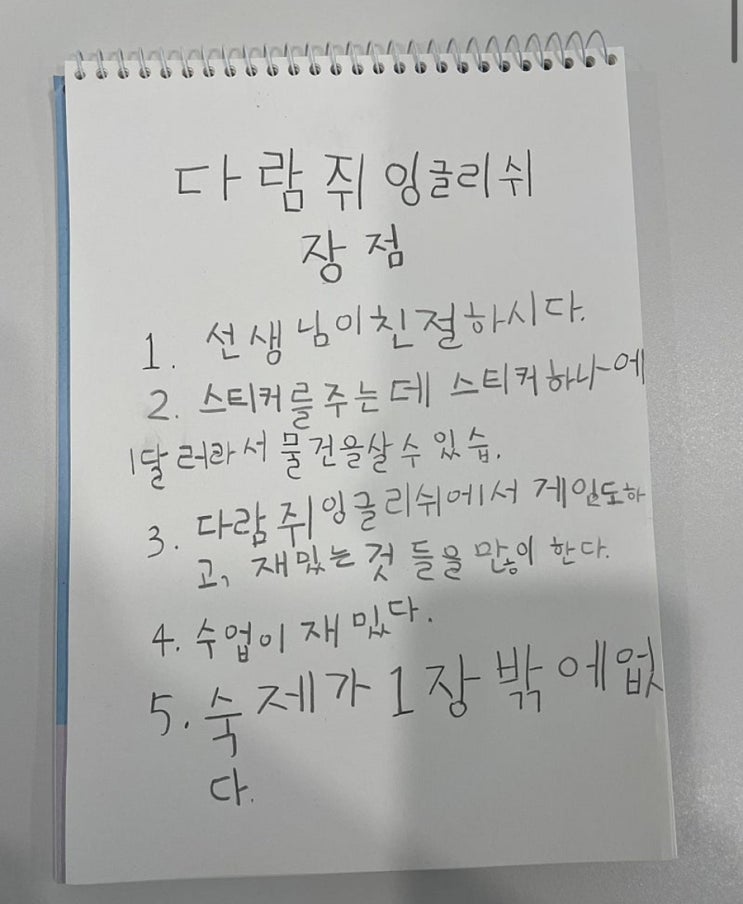 다람쥐 잉글리쉬
장점
1. 선생님이 친절하시다.
2. 스티커를 주는데 스티커 하나에
1달러라서 물건을 살 수 있습.
3. 다람쥐 잉글리쉬에서 게임도 하
고, 재밌는 것들을 많이 한다.
4. 수업이 재밌다.
5. 숙제가 1장 밖에 없
다.